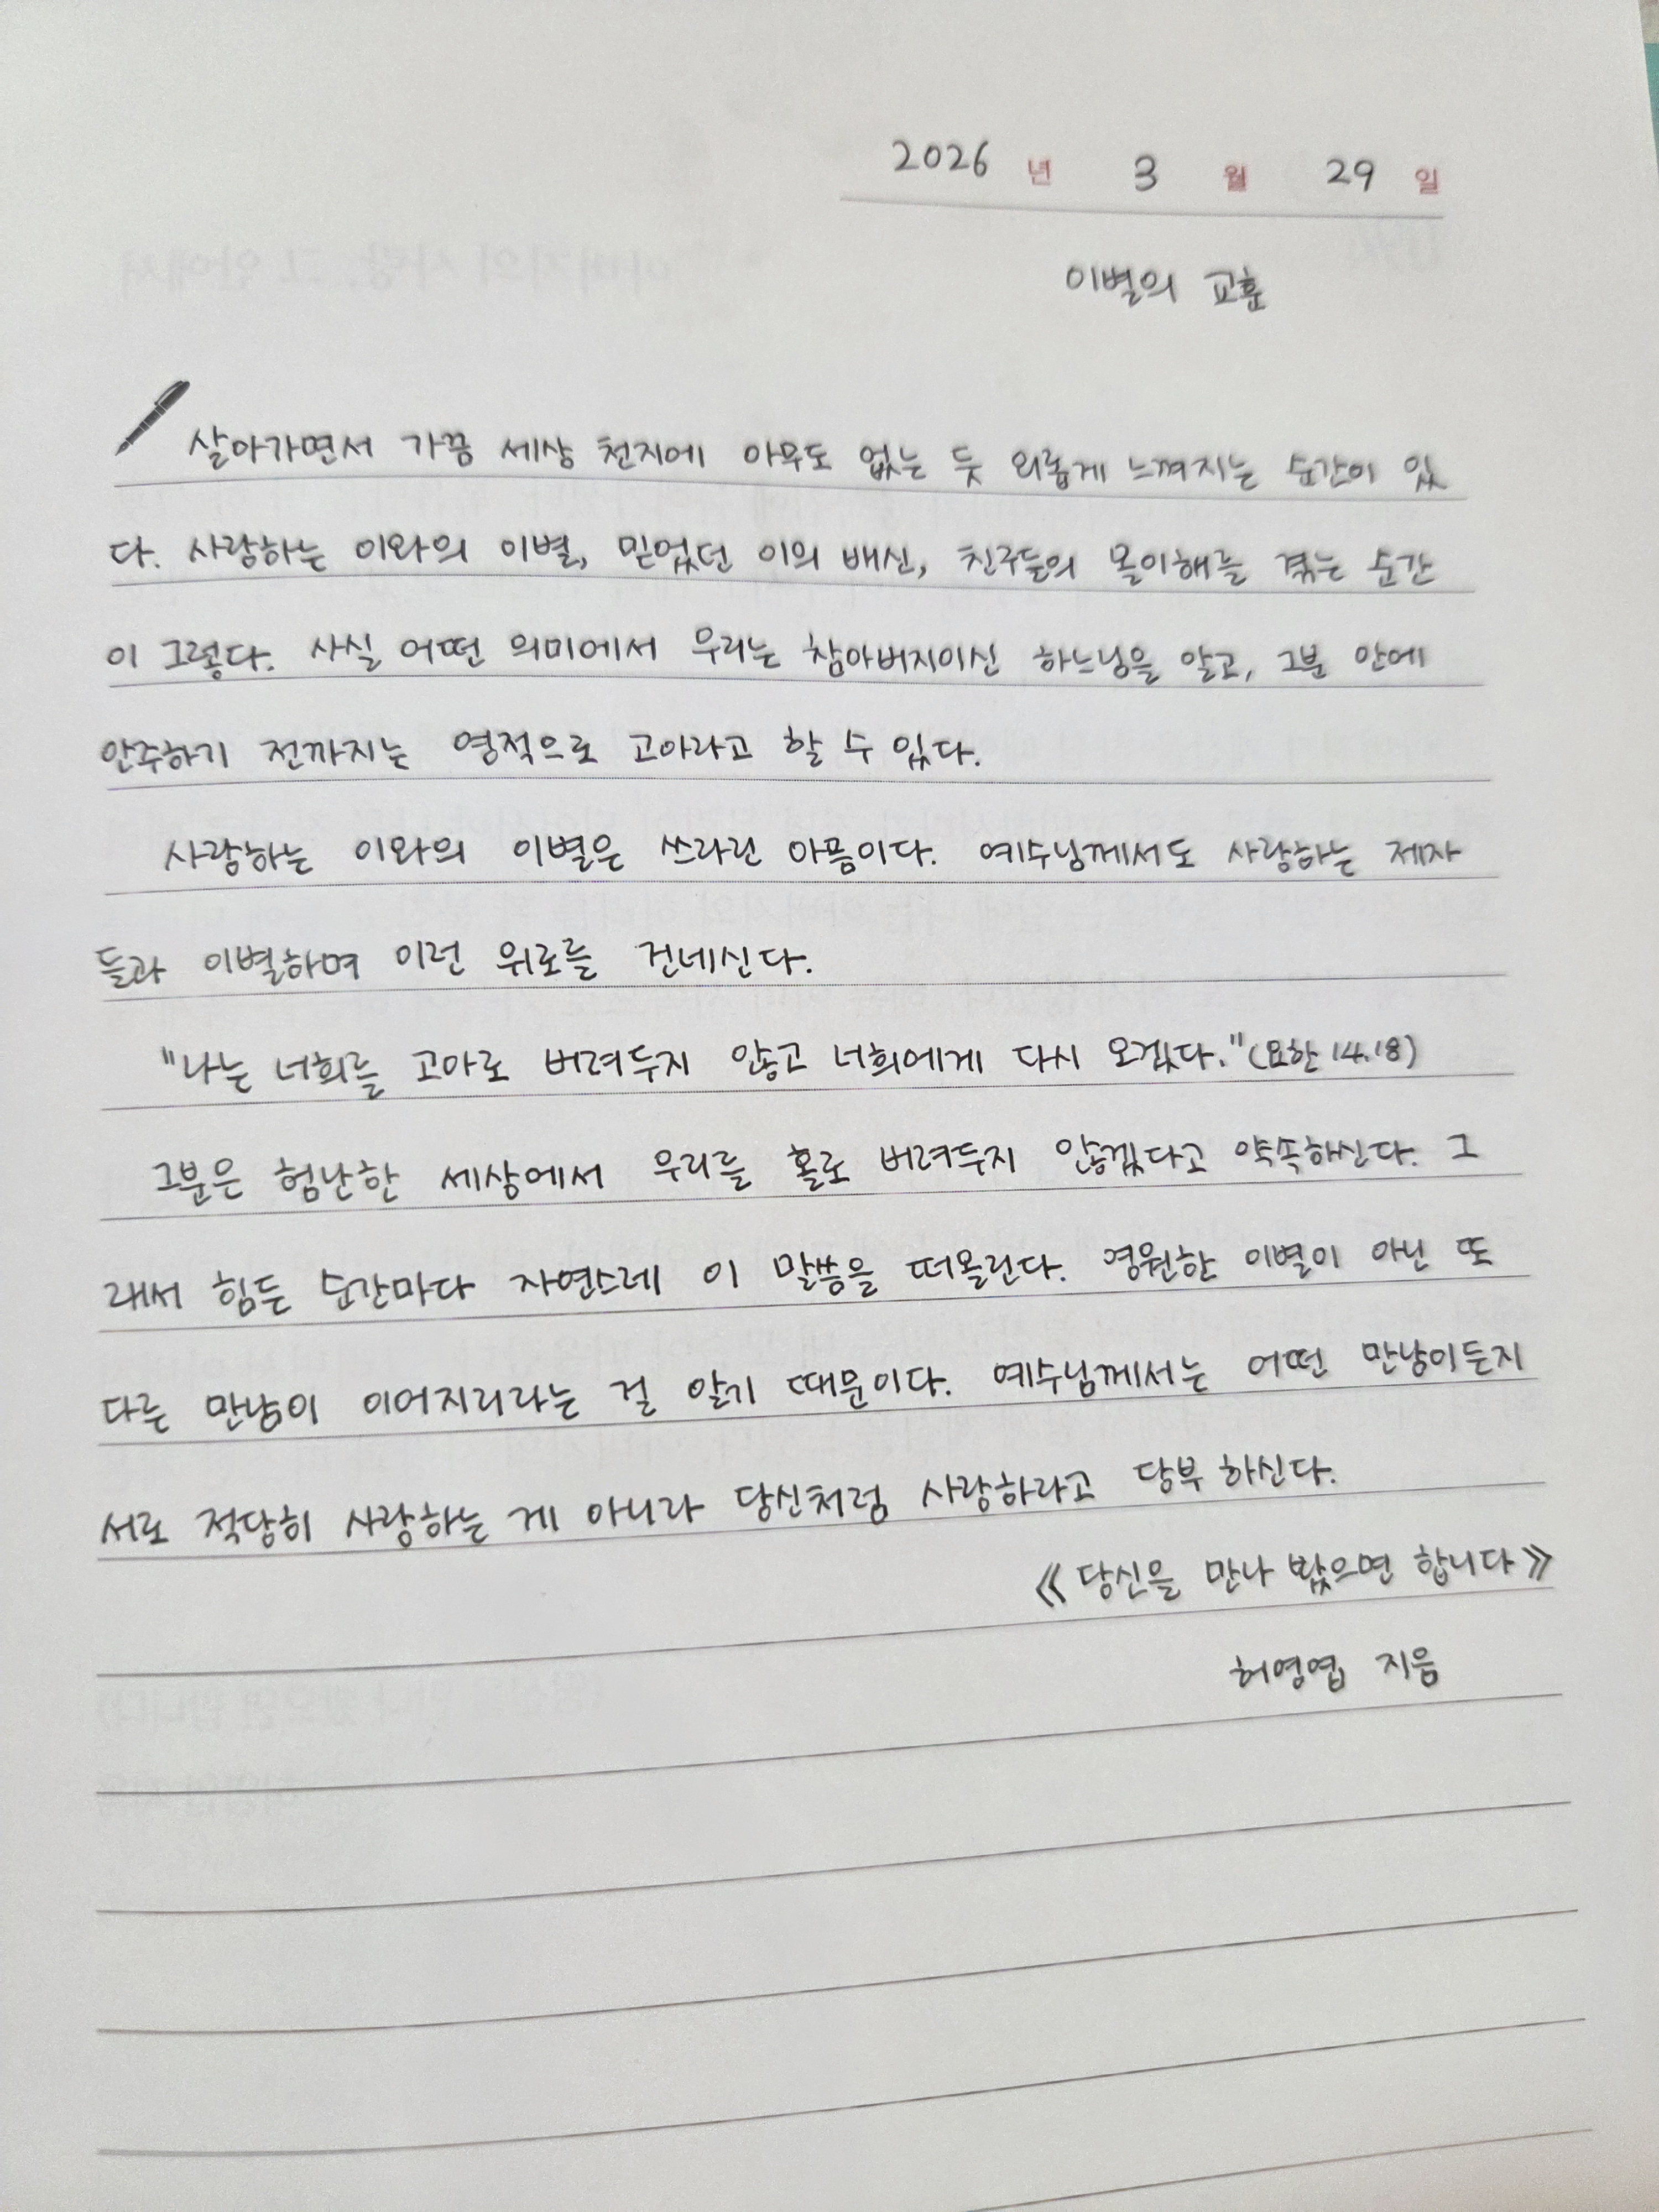 2026 년 3 월 29 일
이별의 교훈
살아가면서 가끔 세상 천지에 아무도 없는 듯 외롭게 느껴지는 순간이 있
다. 사랑하는 이와의 이별, 믿었던 이의 배신, 친구들의 몰이해를 겪는 순간
이 그렇다. 사실 어떤 의미에서 우리는 참아버지이신 하느님을 알고, 그분 안에
안주하기 전까지는 영적으로 고아라고 할 수 있다.
사랑하는 이와의 이별은 쓰라린 아픔이다. 예수님께서도 사랑하는 제자
들과 이별하며 이런 위로를 건네신다.
"나는 너희를 고아로 버려두지 않고 너희에게 다시 오겠다."(요한 14.18)
그분은 험난한 세상에서 우리를 홀로 버려두지 않겠다고 약속하신다. 그
래서 힘든 순간마다 자연스레 이 말씀을 떠올린다. 영원한 이별이 아닌 또
다른 만남이 이어지리라는 걸 알기 때문이다. 예수님께서는 어떤 만남이든지
서로 적당히 사랑하는 게 아니라 당신처럼 사랑하라고 당부 하신다.
《당신을 만나 봤으면 합니다》
허영엽 지음